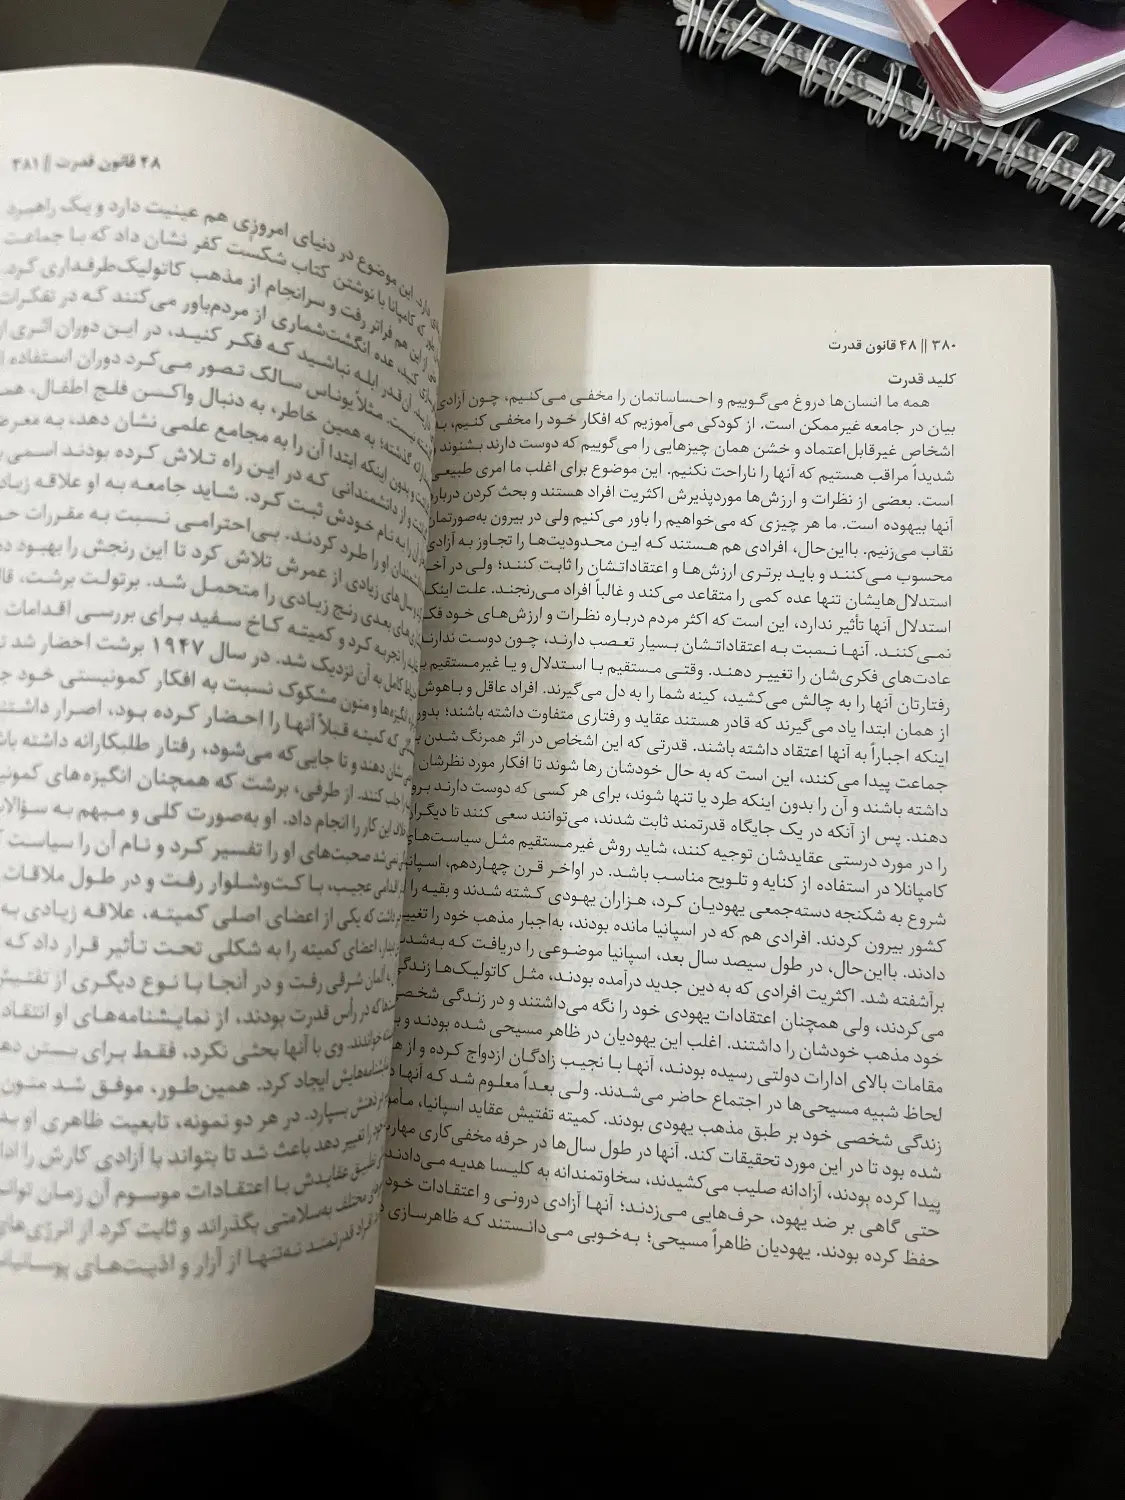 ۳۸۰ || ۴۸ قانون قدرت
کلید قدرت
همه ما انسان‌ها دروغ می‌گوییم و احساساتمان را مخفی می‌کنیم، چون آزادی
بیان در جامعه غیرممکن است. از کودکی می‌آموزیم که افکار خود را مخفی کنیم، به
اشخاص غیرقابل‌اعتماد و خشن همان چیزهایی را می‌گوییم که دوست دارند بشنوند
شدیداً مراقب هستیم که آنها را ناراحت نکنیم. این موضوع برای اغلب ما امری طبیعی
است. بعضی از نظرات و ارزش‌ها موردپذیرش اکثریت افراد هستند و بحث کردن درباره
آنها بیهوده است. ما هر چیزی که می‌خواهیم را باور می‌کنیم ولی در بیرون به‌صورتمان
نقاب می‌زنیم. بااین‌حال، افرادی هم هستند که این محدودیت‌ها را تجاوز به آزادی
محسوب می‌کنند و باید برتری ارزش‌ها و اعتقاداتشان را ثابت کنند؛ ولی در آخر
استدلال‌هایشان تنها عده کمی را متقاعد می‌کند و غالباً افراد می‌رنجند. علت اینکه
استدلال آنها تأثیر ندارد، این است که اکثر مردم درباره نظرات و ارزش‌های خود فکر
نمی‌کنند. آنها نسبت به اعتقاداتشان بسیار تعصب دارند، چون دوست ندارند
عادت‌های فکری‌شان را تغییر دهند. وقتی مستقیم با استدلال و یا غیرمستقیم با
رفتارتان آنها را به چالش می‌کشید، کینه شما را به دل می‌گیرند. افراد عاقل و باهوش
از همان ابتدا یاد می‌گیرند که قادر هستند عقاید و رفتاری متفاوت داشته باشند؛ بدون
اینکه اجباراً به آنها اعتقاد داشته باشند. قدرتی که این اشخاص در اثر همرنگ شدن با
جماعت پیدا می‌کنند، این است که به حال خودشان رها شوند تا افکار مورد نظرشان
داشته باشند و آن را بدون اینکه طرد یا تنها شوند، برای هر کسی که دوست دارند بروز
دهند. پس از آنکه در یک جایگاه قدرتمند ثابت شدند، می‌توانند سعی کنند تا دیگران
را در مورد درستی عقایدشان توجیه کنند، شاید روش غیرمستقیم مثل سیاست‌های
کامپانلا در استفاده از کنایه و تلویح مناسب باشد. در اواخر قرن چهاردهم، اسپانیا
شروع به شکنجه دسته‌جمعی یهودیان کرد، هزاران یهودی کشته شدند و بقیه را از
کشور بیرون کردند. افرادی هم که در اسپانیا مانده بودند، به‌اجبار مذهب خود را تغییر
دادند. بااین‌حال، در طول سیصد سال بعد، اسپانیا موضوعی را دریافت که به‌شدت
برآشفته شد. اکثریت افرادی که به دین جدید درآمده بودند، مثل کاتولیک‌ها زندگی
می‌کردند، ولی همچنان اعتقادات یهودی خود را نگه می‌داشتند و در زندگی شخصی
خود مذهب خودشان را داشتند. اغلب این یهودیان در ظاهر مسیحی شده بودند و به
مقامات بالای ادارات دولتی رسیده بودند، آنها با نجیب زادگان ازدواج کرده و از هر
لحاظ شبیه مسیحی‌ها در اجتماع حاضر می‌شدند. ولی بعداً معلوم شد که آنها در
زندگی شخصی خود بر طبق مذهب یهودی بودند. کمیته تفتیش عقاید اسپانیا، مأمور
شده بود تا در این مورد تحقیقات کند. آنها در طول سال‌ها در حرفه مخفی‌کاری مهارت
پیدا کرده بودند، آزادانه صلیب می‌کشیدند، سخاوتمندانه به کلیسا هدیه می‌دادند
حتی گاهی بر ضد یهود، حرف‌هایی می‌زدند؛ آنها آزادی درونی و اعتقادات خود
حفظ کرده بودند. یهودیان ظاهراً مسیحی؛ به‌خوبی می‌دانستند که ظاهرسازی
۴۸ قانون قدرت || ۳۸۱
دارد. این موضوع در دنیای امروزی هم عینیت دارد و یک راهبرد
که کامپانا با نوشتن کتاب شکست کفر نشان داد که با جماعت
از این هم فراتر رفت و سرانجام از مذهب کاتولیک‌طرفداری کرد.
کنید، عده انگشت‌شماری از مردم‌باور می‌کنند که در تفکرات
آن‌قدر ابله نباشید که فکر کنید، در این دوران اثری از
نیست. مثلاً یوناس سالک تصور می‌کرد دوران استفاده
گذشته؛ به همین خاطر، به دنبال واکسن فلج اطفال،
و بدون اینکه ابتدا آن را به مجامع علمی نشان دهد، به
و از دانشمندانی که در این راه تلاش کرده بودند اسمی
را به نام خودش ثبت کرد. شاید جامعه به او علاقه
او را طرد کردند. بی‌احترامی نسبت به مقررات
سال‌های زیادی از عمرش تلاش کرد تا این رنجش را بهبود
بعدی رنج زیادی را متحمل شد. برتولت برشت،
را تجربه کرد و کمیته کاخ سفید برای بررسی اقدامات
کامل به آن نزدیک شد. در سال ۱۹۴۷ برشت احضار شد
و متون مشکوک نسبت به افکار کمونیستی خود
که کمیته قبلاً آنها را احضار کرده بود، اصرار داشتند
نشان دهند و تا جایی‌که می‌شود، رفتار طلبکارانه داشته
کنند. از طرفی، برشت که همچنان انگیزه‌های
این کار را انجام داد. او به‌صورت کلی و مبهم به
صحبت‌های او را تفسیر کرد و نام آن را سیاست
عجیب، با کت‌وشلوار رفت و در طول ملاقات
داشت که یکی از اعضای اصلی کمیته، علاقه زیادی به
اعضای کمیته را به شکلی تحت تأثیر قرار داد که
آلمان شرقی رفت و در آنجا با نوع دیگری از تفتیش
که در رأس قدرت بودند، از نمایشنامه‌های او انتقاد
خواندند. وی با آنها بحثی نکرد، فقط برای بستن
ایجاد کرد. همین‌طور، موفق شد متون
بسپارد. در هر دو نمونه، تابعیت ظاهری او
را تغییر دهد باعث شد تا بتواند با آزادی کارش را
طبق عقایدش با اعتقادات موسوم آن زمان
مختلف به‌سلامتی بگذراند و ثابت کرد از انرژی‌های
افراد قدرتمند نه‌تنها از آزار و اذیت‌های